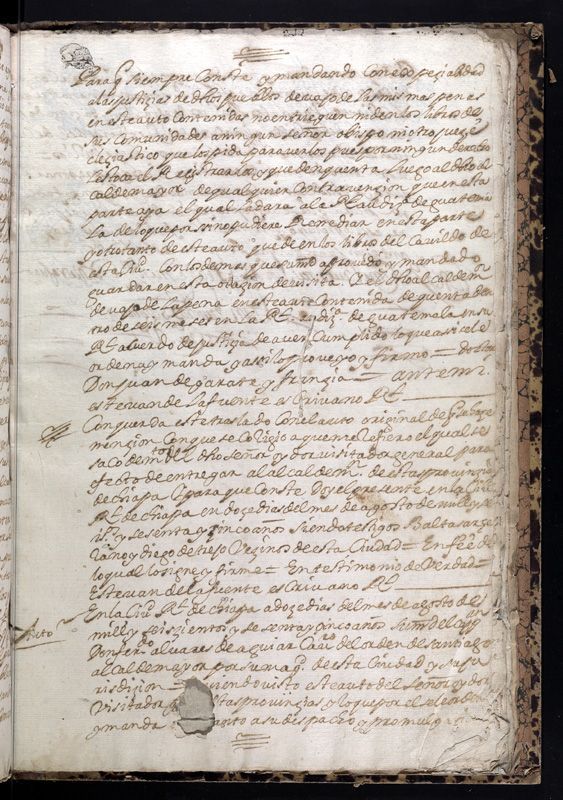 Para q siempre Conste y mandando Con espeçialidad
a las justiçias de dhos pueblos devajo de las mismas penas
en este auto Contenidas no entreguen ni den los libros de
sus Comunidades a ningun señor obispo ni otro juez e
cleçiastico que los pida para verlos pues por ningun derecho
le toca el Registrarlos y que den quenta luego al dho al
calde mayor de qualquier Contravençion que en esta
parte aya el qual la dara a la Rl audiª de guatema
la de lo que por si no pudiere Remediar en esta parte
y otro tanto de este auto quede en los libros del Cavildo de
esta Çiuª. Con los demas que su md a proveydo y mandado
guardar en esta ocasion de visita. Y el dho alcalde mr.
devajo de la pena en este auto Contenida de quenta den
tro de seis meses en la Rl audiª de guatemala en su
Rl acuerdo de justiçia de aver Cumplido lo que assi se le
ordena y manda y assi lo proveyo y firmo = Dotor
Don Juan de garate y françia = ante mi
estevan de la fuente escrivano Rl
Concuerda este traslado Con el auto original de que haze
mençion Con que se Corrigio a que me Refiero el qual se
saco de mdto del dho señor oydor visitador general para
efecto de entregar al alcalde mr. de esta provinçia
de chiapa Y para que Conste doy el presente en la Çiuª
Rl de chiapa en doze dias del mes de agosto de mill y se
isçº y sesenta y çinco años siendo testigos Baltasar ga
 y diego de treso Vezinos de esta Ciudad = En fee de
lo qual lo signe y firme = En testimonio de Verdad =
Estevan de la fuente escrivano Rl
Auto
En la Çiuª Rl de chiapa a doze dias del mes de agosto de
mill y seisçientos y sesenta y çinco años El sr. mre de Campo
Don ferdo alvares de aguiar Cavº del orden de santiago
alcalde mayor por su magª. de esta Ciudad y su ju
risdiçion = aviendo visto este auto del señor oydor
Visitador de estas provinçias y lo que por el se ordena
y manda en quanto a su despacho y promulg